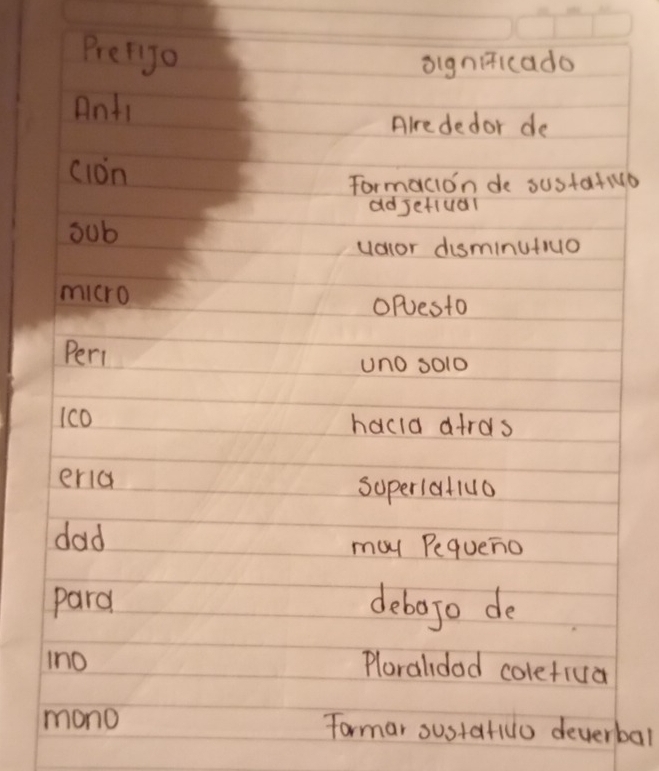 Prefijo significado
Anti Alrededor de
ción Formación de sustativo
adjetival
sub valor disminutivo
micro opuesto
Peri uno solo
ico hacia atras
eria superlativo
dad muy Pequeño
para debajo de
ino Pluralidad coletiva
mono Formar sustativo deverbal